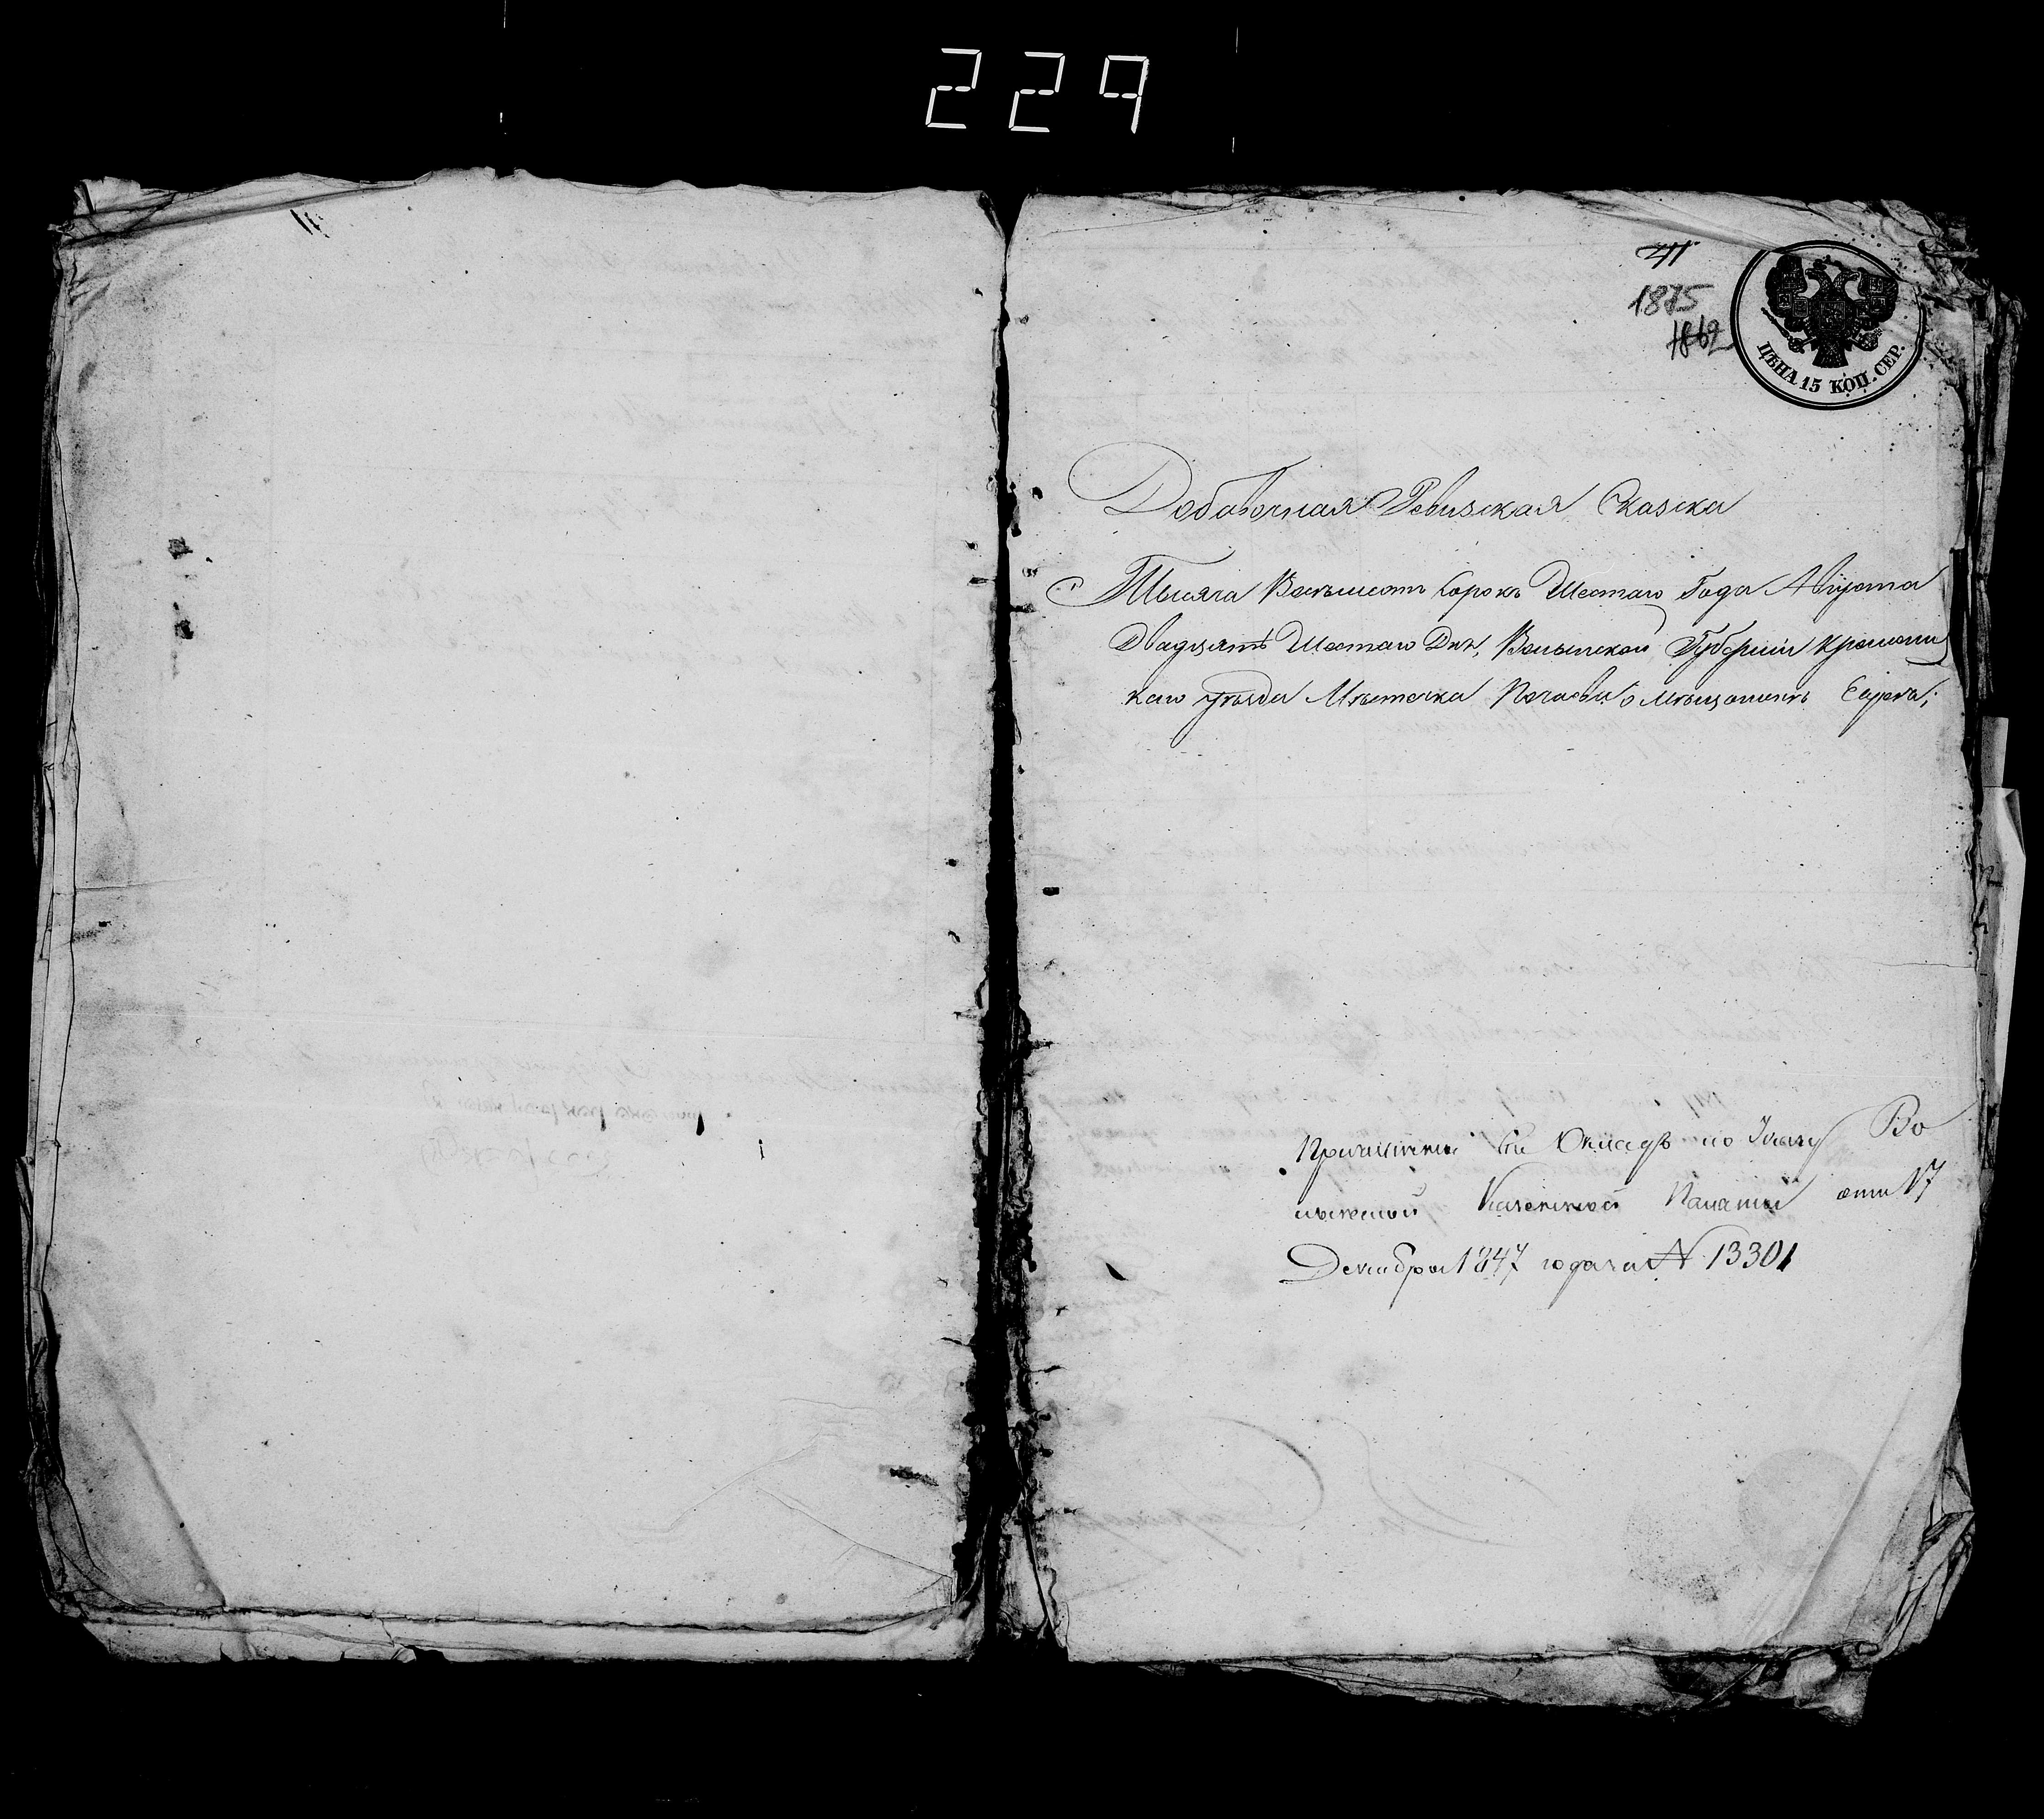 229
41
1875
1862
ЦѢНА 15 КОП. СЕР.
Добавочная Ревизская Сказка
Тысяча Восемьсотъ Сорокъ Шестаго Года Августа
Двадцять Шестаго Дня, Волынской Губерніи Кременец
каго уѣзда Мѣстечка Почаева о мѣщанинѣ Евреѣ;
Причислены въ Окладъ по Указу Во
лынской Казенной Палаты отъ 17
Декабря 1847 года за № 13301